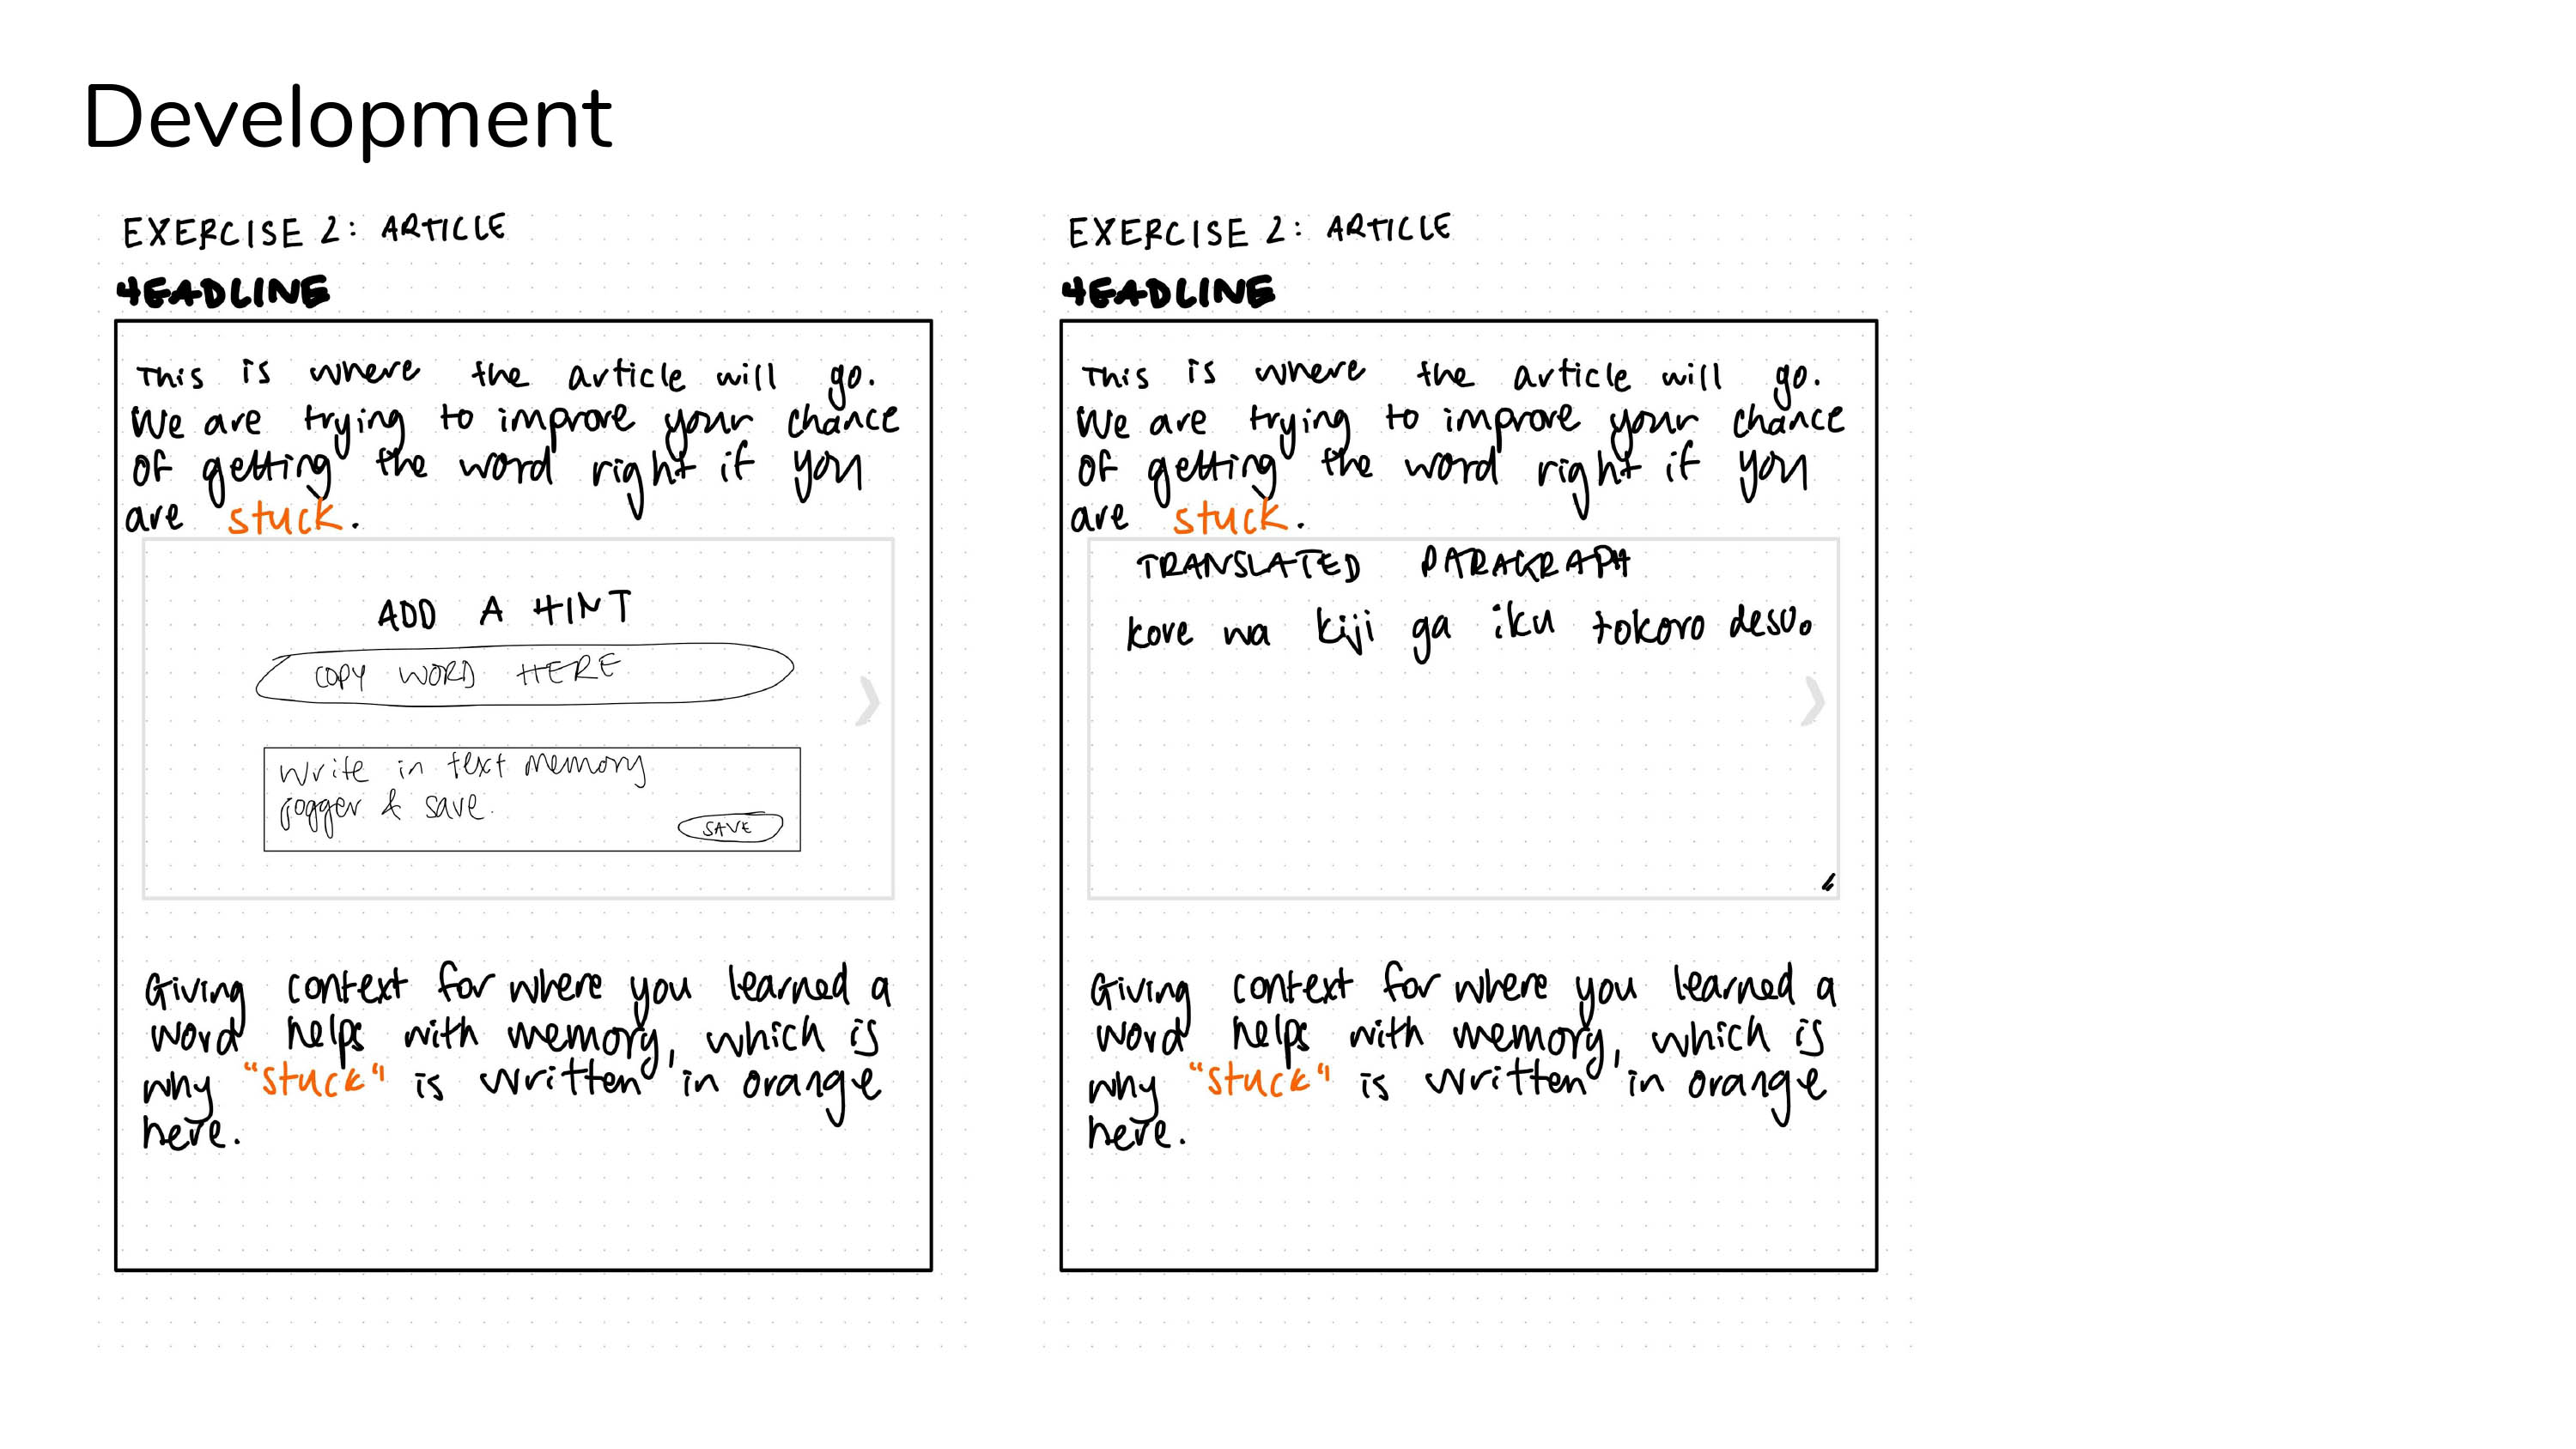 Development
EXERCISE 2: ARTICLE
HEADLINE
This is where the article will go.
We are trying to improve your chance
of getting the word right if you
are stuck.
ADD A HINT
COPY WORD HERE
Write in text memory
jogger & save.
SAVE
Giving context for where you learned a
word helps with memory, which is
why "stuck" is written in orange
here.
EXERCISE 2: ARTICLE
HEADLINE
This is where the article will go.
We are trying to improve your chance
of getting the word right if you
are stuck.
TRANSLATED PARAGRAPH
kore wa kiji ga iku tokoro desu.
Giving context for where you learned a
word helps with memory, which is
why "stuck" is written in orange
here.